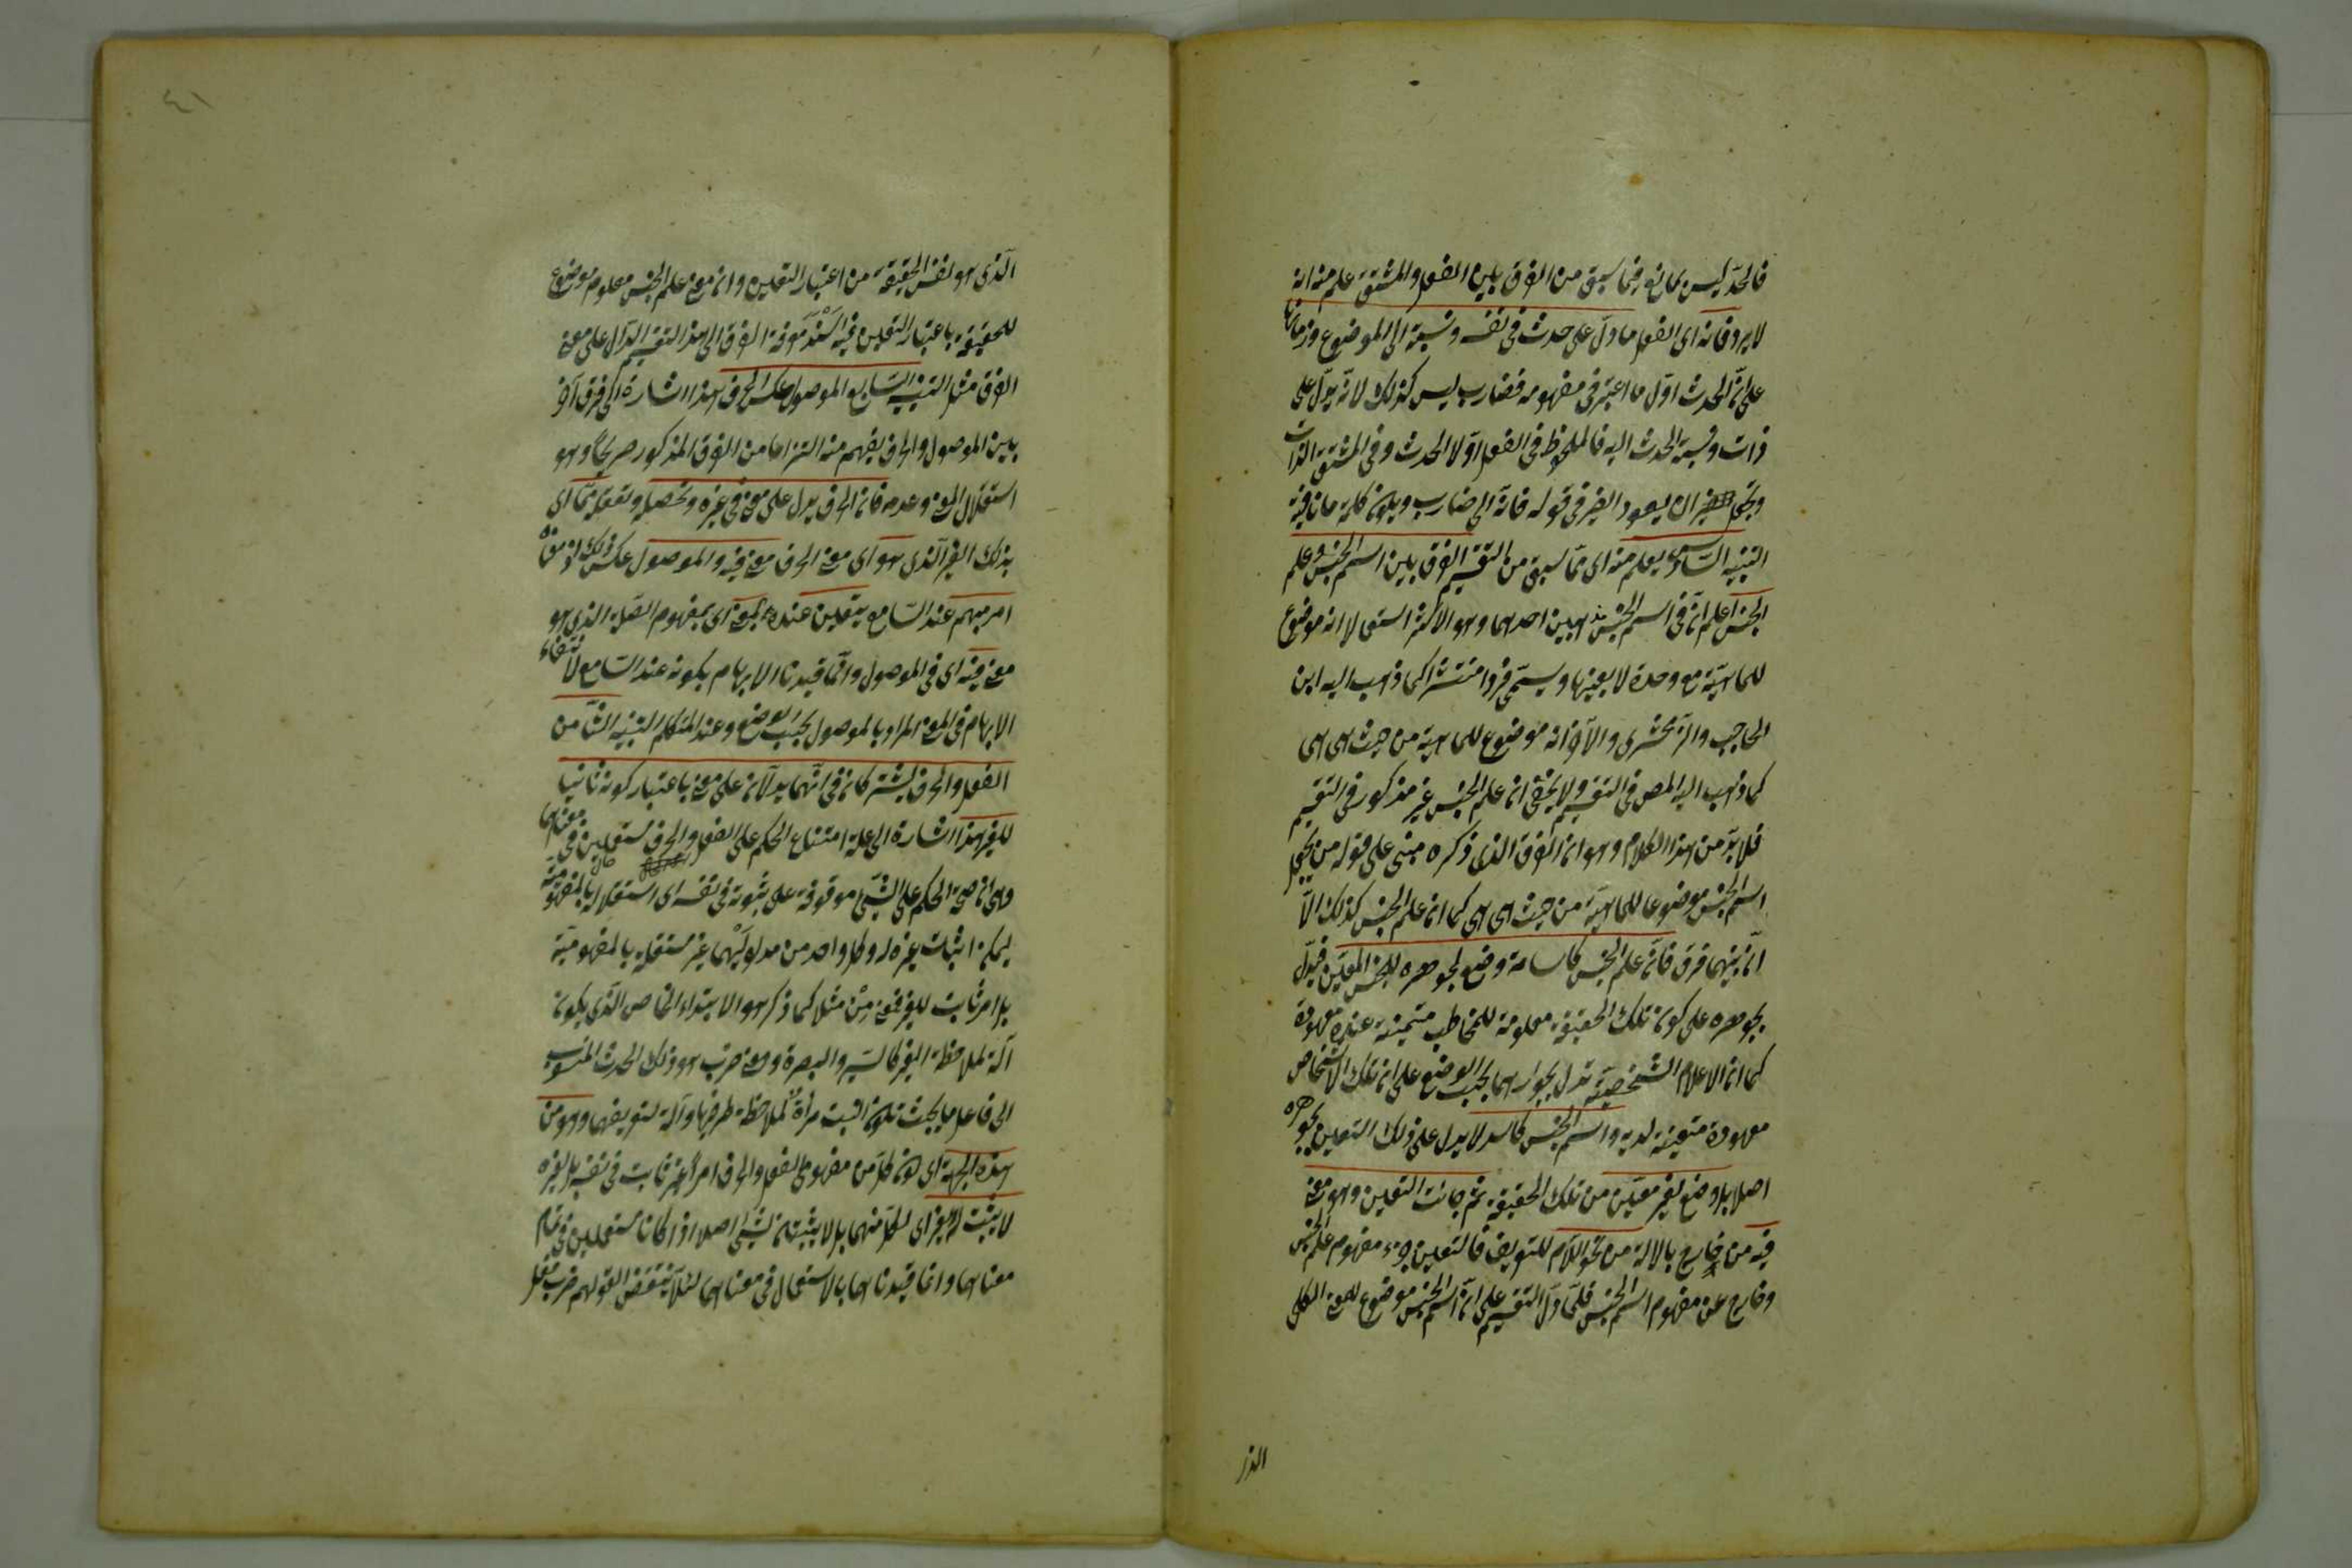 فالحد ليس بمانع فيما سبق من الفرق بين الفعل والمشتق علم منه انه
لا يرد فانه اى الفعل ما دلّ على حدث فى نفسه ونسبة الى الموضوع وزمانها
على انّ الحدث اوّل ما اعتبر فى مفهومه فضارب ليس كذلك لانّه يدلّ على
ذات ونسبة الحدث اليه فالملحوظ فى الفعل اوّلا الحدث وفى المشتق الذات
ان يعود الضمير فى قوله فانّه الى ضارب ويكون كلمة ما نافية
التنبيه السادس يعلم منه اى ممّا سبق من التقسيم الفرق بين اسم الجنس وعلم
الجنس اعلم انّ فى اسم الجنس مذهبين احدهما وهو الاكثر استعمالا انه موضوع
للماهيّة مع وحدة لا بعينها ويسمّى فردا منتشرا كما ذهب اليه ابن
الحاجب والزمخشرى والآخر انه موضوع للماهيّة من حيث هى هى
كما ذهب اليه المص فى التقسيم ولا يخفى ان علم الجنس غير مذكور فى التقسيم
فلا بدّ من هذا الكلام وهو ان الفرق الذى ذكره مبنى على قوله من يجعل
اسم الجنس موضوعا للماهيّة من حيث هى هى كما ان علم الجنس كذلك الّا
انّ بينهما فرق فانّ علم الجنس كاسامة وضع لجوهره للجنس المعيّن فيدلّ
بجوهره على كون تلك الحقيقة معلومة للمخاطب متميزة عنده معهودة
كما ان الاعلام الشخصيّة تدل بجواهرها بحسب الوضع على ان تلك الاشخاص
معهودة متعينة لديه واسم الجنس كاسد لا يدل على ذلك التعيين بجوهره
اصلا بل وضع لغير معيّن من تلك الحقيقة ثم جائت التعيين وهو معنى
فيه من خارج بالالة من نحو اللام للتعريف فالتعيين جزء مفهوم علم الجنس
وخارج عن مفهوم اسم الجنس فلمّا دلّ التقسيم على انّ اسم الجنس موضوع للمعنى الكلى
الذى
٤١
الّذى هو نفس الحقيقة من اعتبار التعيين وان معنى علم الجنس معلوم موضوع
للحقيقة باعتبار التعيين فيه اسند معرفة الفرق الى هذا التقسيم الدالّ على معنى
الفرق مثل التنبيه السّابع الموصول عكس الحرف هذا اشارة الى فرق آخر
بين الموصول والحرف يفهم منه التزاما من الفرق المذكور صريحا وهو
استقلال المعنى وعدمه فان الحرف يدل على معنى فى غيره وتحصيله وتعقله ممّا اى
بذلك الغير الذى هو اى معنى الحرف معنى فيه والموصول عكس ذلك اذ معناه
امر مبهم عند السّامع يتعيّن عنده بمعنى اى بمفهوم الصّلة الذى هو
معنى فيه اى فى الموصول وانّما قيدنا الابهام بكونه عند السّامع لانتفاء
الابهام فى المعنى المراد بالموصول بحسب الوضع وعند المتكلم التنبيه الثامن
الفعل والحرف يشتركان فى انّهما يدلّان على معنى باعتبار كونه ثابتا
للغير هذا اشارة الى علة امتناع الحكم على الفعل والحرف مستعملين فى معناهما
وهى ان صحّة الحكم على الشّئ موقوفة على ثبوته فى نفسه اى استقلاله بالمفهوميّة
ليمكن اثبات غيره له وكل واحد من مدلوليهما غير مستقلة بالمفهوميّة
بل امر ثابت للغير فمعنى مِنْ مثلا كما ذكر هو الابتداء الخاص الّذى يكون
آلة لملاحظة الغير كالسّير والبصرة ومعنى ضرب هو ذلك الحدث المنسوب
الى فاعل ما بحيث تكون النسبة مرآة لملاحظة طرفيها وآلة لتعريفهما وهو من
هذه الجهة اى كون كلّ من مفهومى الفعل والحرف امرا غير ثابت فى نفسه بل لغيره
لا يثبت له الغير اى لكلّ منهما بل لا يثبتان لشئ اصلا اذا كانا مستعملين فى تمام
معناهما وانما قيدناهما بالاستعمال فى معناهما لئلّا ينتقض القولهم ضرب فعل